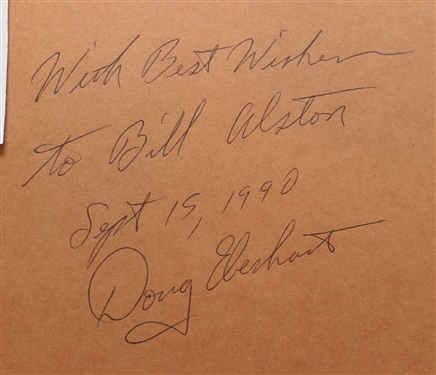 With Best Wishes
to Bill Alston
Sept 15, 1990
Doug Eberhart